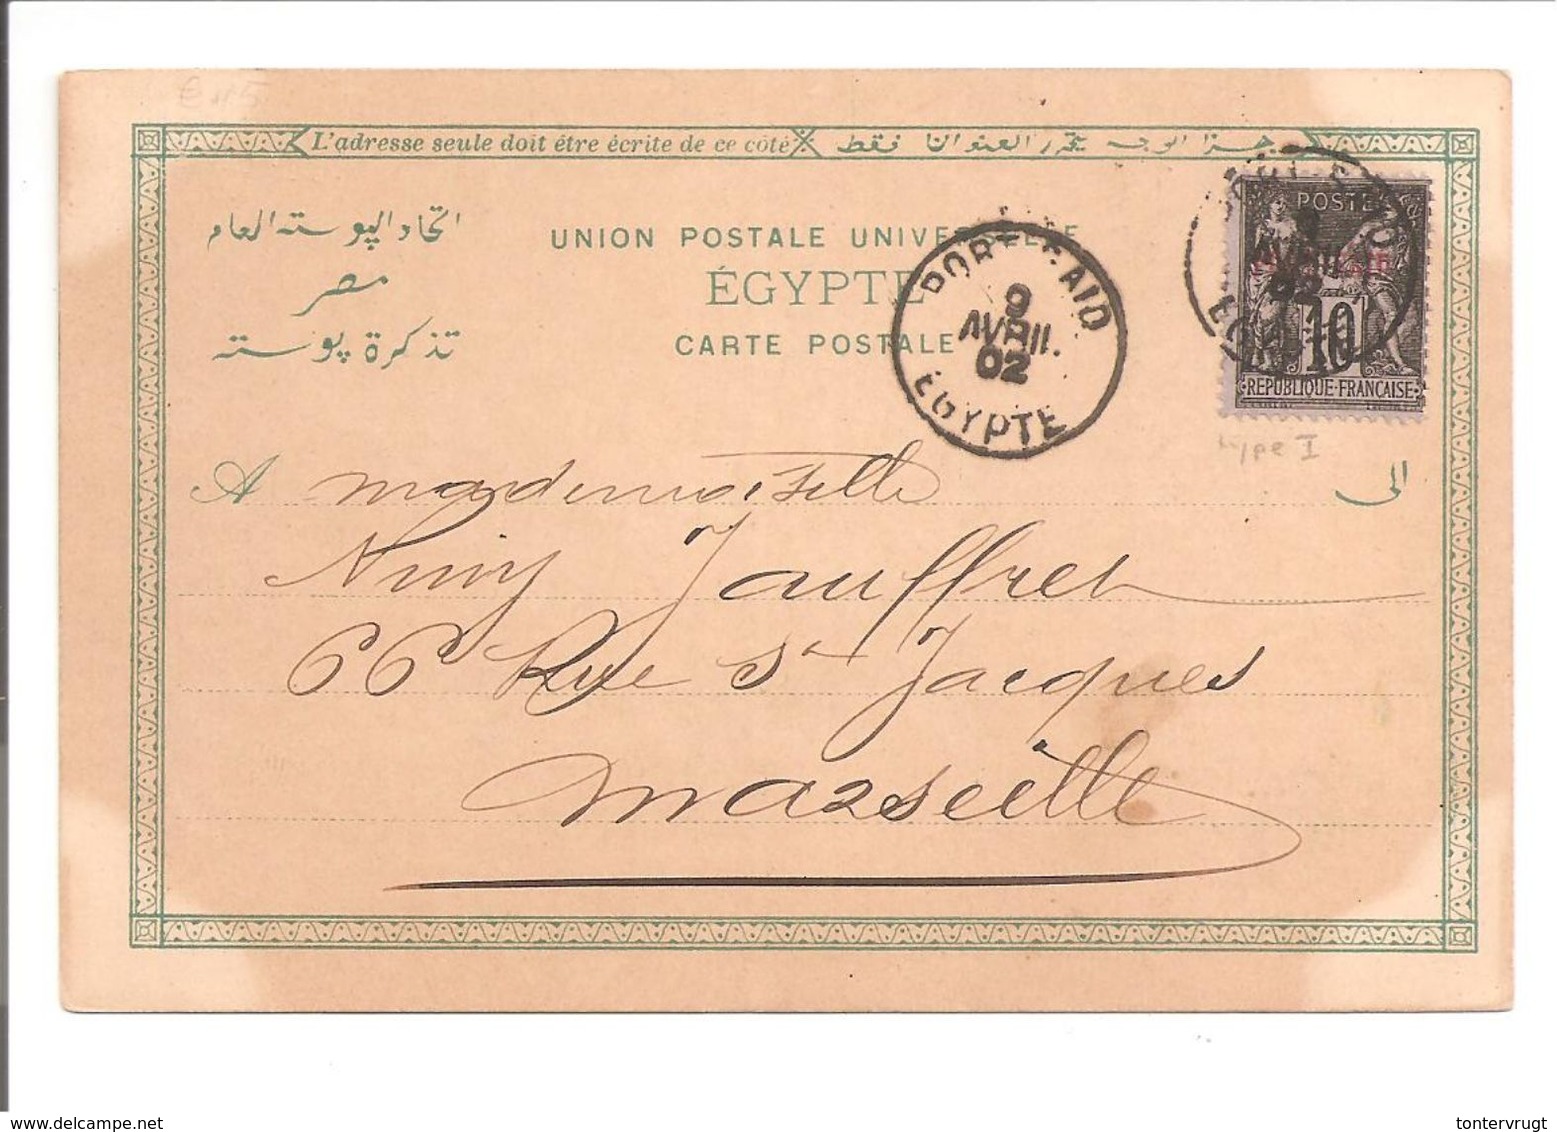 L'adresse seule doit être écrite de ce côté
اتحاد البوسته العام
مصر
تذكرة بوسته
UNION POSTALE UNIVERSELLE
ÉGYPTE
CARTE POSTALE
PORT-SAID
9
AVRIL
02
EGYPTE
POSTE
10
REPUBLIQUE FRANÇAISE
type I
A mademoiselle
الى
Jauffret
66 Rue St Jacques
Marseille
delcampe.net
tontervrugt